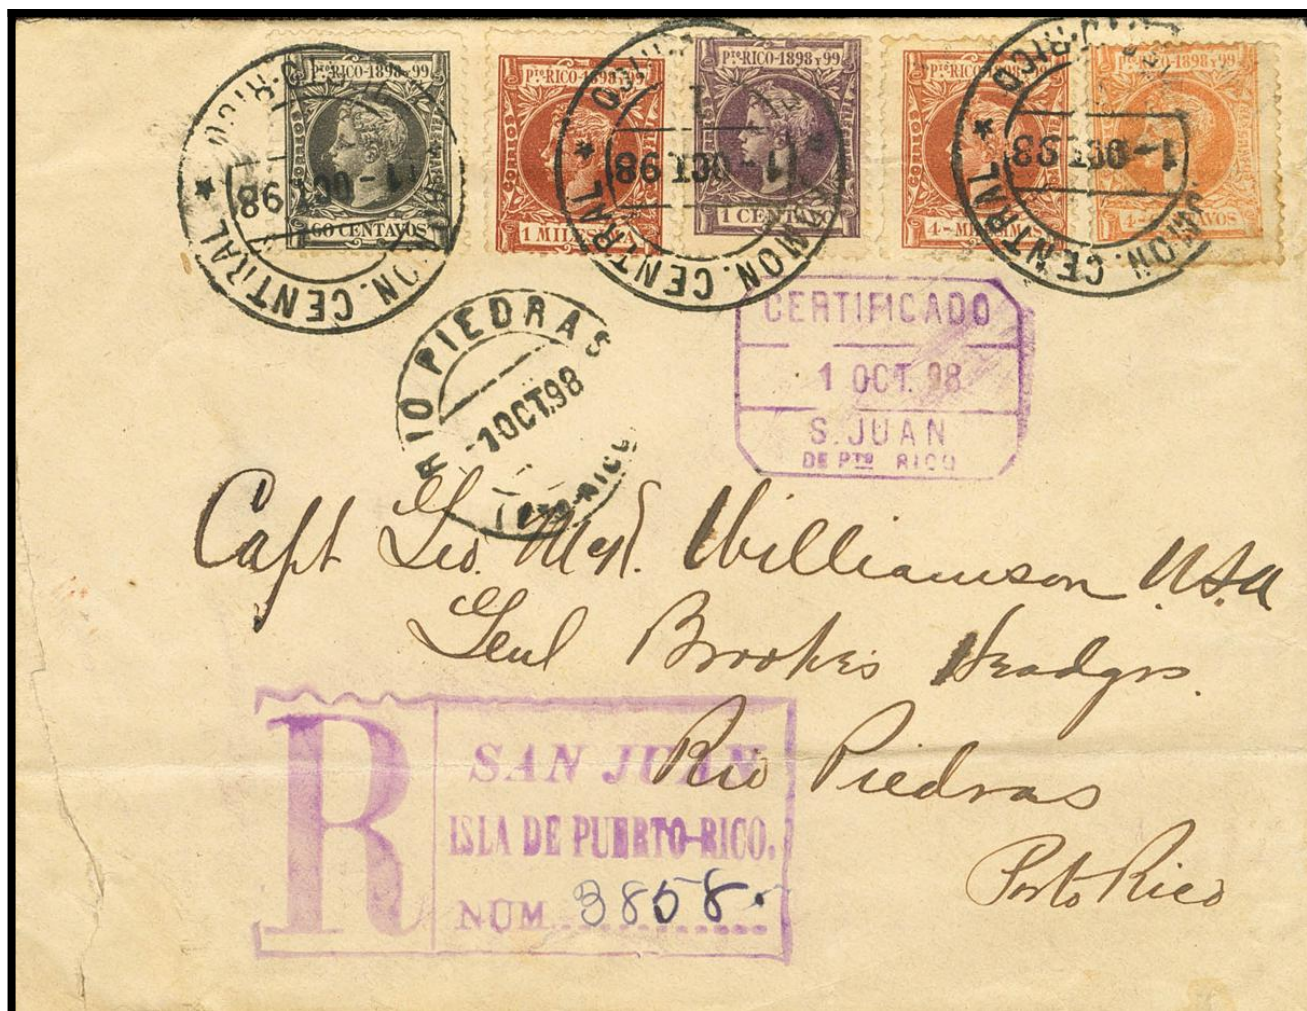 Pto RICO-1898 Y 99
CORREOS
60 CENTAVOS
Pto RICO-1898 Y 99
CORREOS
1 MILESIMA
Pto RICO-1898 Y 99
1 CENTAVO
Pto RICO-1898 Y 99
CORREOS
4-
Pto RICO-1898 Y 99
4- CENTAVOS
1-OCT 98
MON. CENTRAL
1-OCT 98
MON. CENTRAL
P.RICO
1-OCT 98
MON. CENTRAL
RIO PIEDRAS
-1 OCT.98
Pto-RICO
CERTIFICADO
1 OCT. 98
S. JUAN
DE PTO RICO
Capt Geo. Williamson U.S.A
Genl Brookes Headqrs.
Rio Piedras
Porto Rico
R
SAN JUAN
ISLA DE PUERTO-RICO.
NUM. 3858